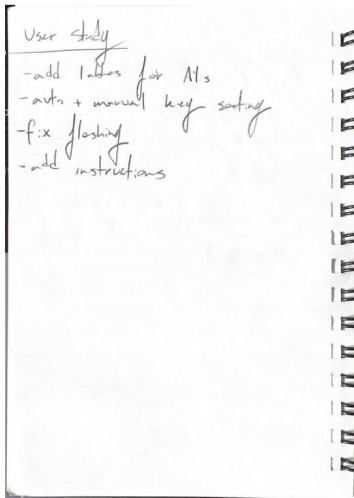 User Study
- add lables for AIs
- auto + manual key sorting
- fix flashing
- add instructions